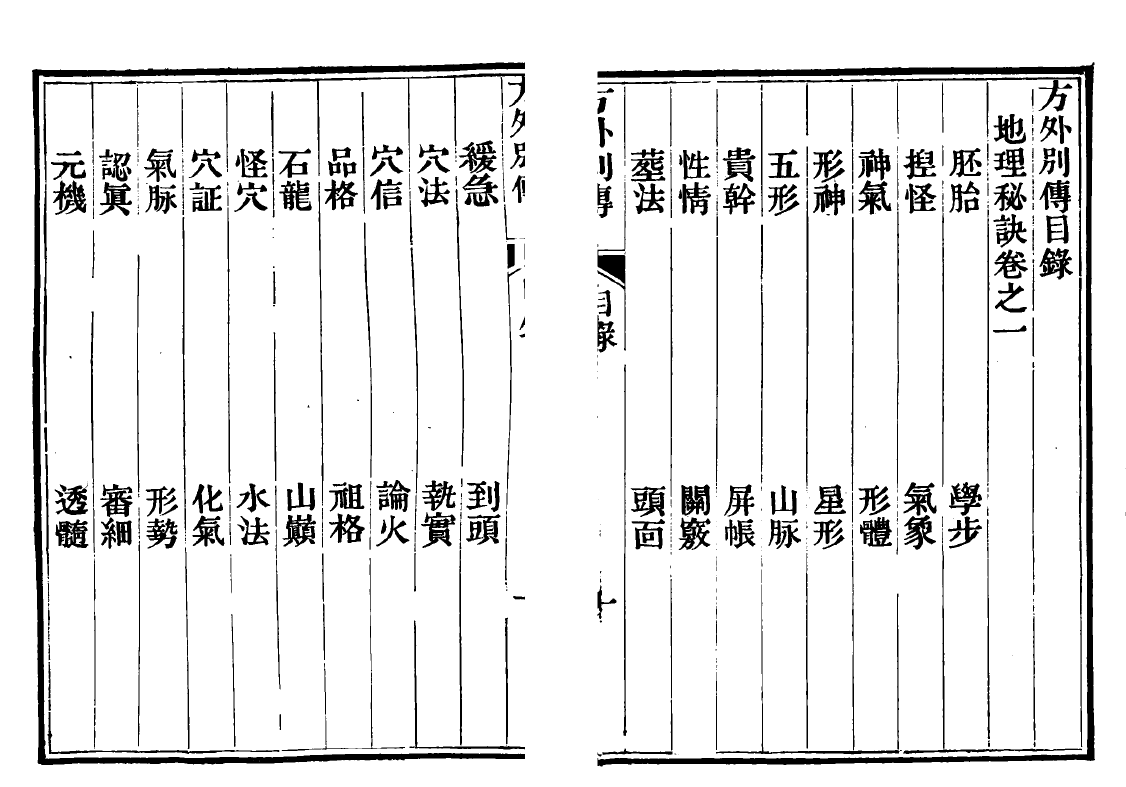 方外別傳目錄
地理秘訣卷之一
胚胎 學步
捏怪 氣象
神氣 形體
形神 星形
五形 山脉
貴幹 屏帳
性情 關竅
塟法 頭面
方外別傳 目錄 一
緩急 到頭
穴法 執實
穴信 論火
品格 祖格
石龍 山巔
怪穴 水法
穴証 化氣
氣脉 形勢
認眞 審細
元機 透髓